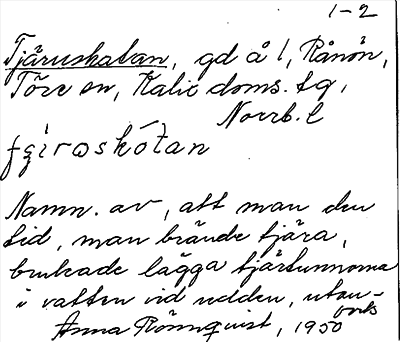 1-2
Tjäruskatan, gd å l, Rånön,
Töre sn, Kalix doms. tg,
Norrb. l
Namn. av, att man den
tid, man brände tjära,
brukade lägga tjärtunnorna
i vatten vid udden, utan-
Anna Rönnqvist, 1950